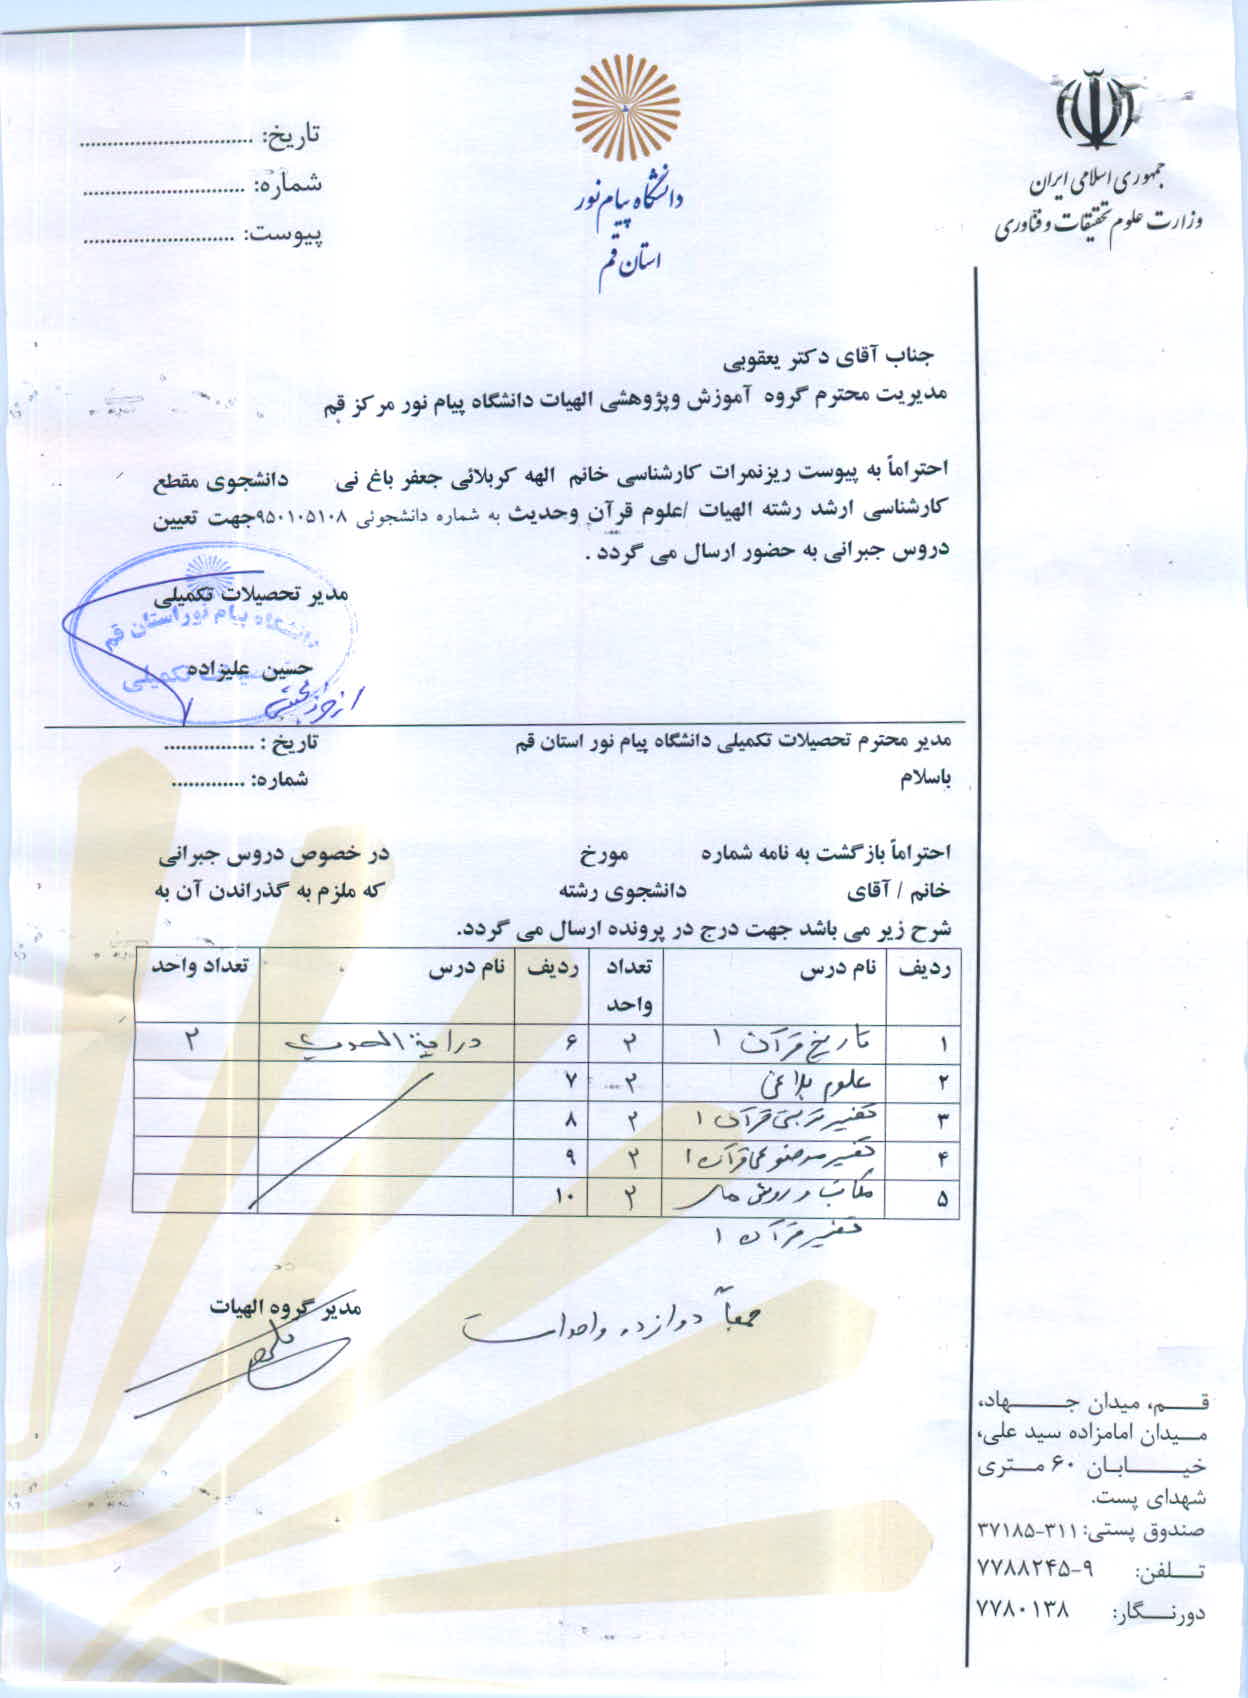 جمهوری اسلامی ایران
وزارت علوم تحقیقات و فناوری
دانشگاه پیام نور
استان قم
تاریخ: ..............................
شماره: ............................
پیوست: ..........................
جناب آقای دکتر یعقوبی
مدیریت محترم گروه آموزش وپژوهشی الهیات دانشگاه پیام نور مرکز قم
احتراماً به پیوست ریزنمرات کارشناسی خانم الهه کربلائی جعفر باغ نی دانشجوی مقطع
کارشناسی ارشد رشته الهیات /علوم قرآن وحدیث به شماره دانشجوئی ۹۵۰۱۰۵۱۰۸جهت تعیین
دروس جبرانی به حضور ارسال می گردد .
مدیر تحصیلات تکمیلی
دانشگاه پیام نور استان قم
حسین علیزاده
تکمیلی
مدیر محترم تحصیلات تکمیلی دانشگاه پیام نور استان قم تاریخ : ...............
باسلام شماره: .............
احتراماً بازگشت به نامه شماره مورخ در خصوص دروس جبرانی
خانم / آقای دانشجوی رشته که ملزم به گذراندن آن به
شرح زیر می باشد جهت درج در پرونده ارسال می گردد.
ردیف نام درس تعداد واحد ردیف نام درس تعداد واحد
۱ تاریخ قرآن ۱ ۲ ۶ درایة الحدیث ۲
۲ علوم بلاغی ۲ ۷
۳ تفسیر تربیتی قرآن ۱ ۲ ۸
۴ تفسیر موضوعی قرآن ۱ ۲ ۹
۵ مکاتب و روش های ۲ ۱۰
تفسیر قرآن ۱
مدیر گروه الهیات
جمعاً دوازده واحد است
قـــم، میدان جـــهاد،
میدان امامزاده سید علی،
خیـــابان ۶۰ متری
شهدای پست.
صندوق پستی: ۳۷۱۸۵-۳۱۱
تـــلفن: ۷۷۸۸۲۴۵-۹
دورنـــگار: ۷۷۸۰۱۳۸